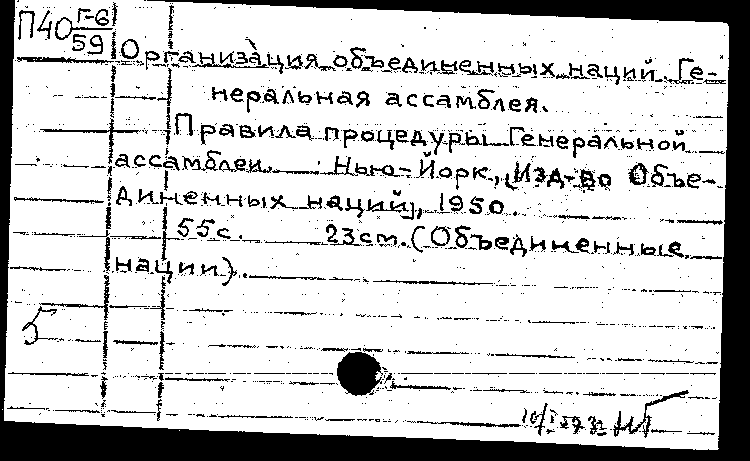 П40 Г-6
59
Организация объединенных наций. Ге-
неральная ассамблея.
Правила процедуры Генеральной
ассамблеи. Нью-Йорк, [Изд-во Объе-
диненных наций], 1950.
55с. 23cm. (Объединенные
нации).
5